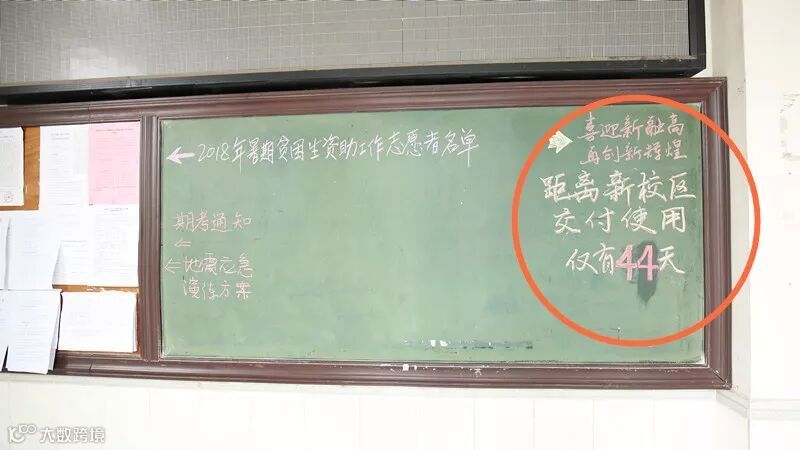 2018年暑期贫困生资助工作志愿者名单
期考通知
地震应急
演练方案
喜迎新融高
再创新辉煌
距离新校区
交付使用
仅有44天
大数跨境